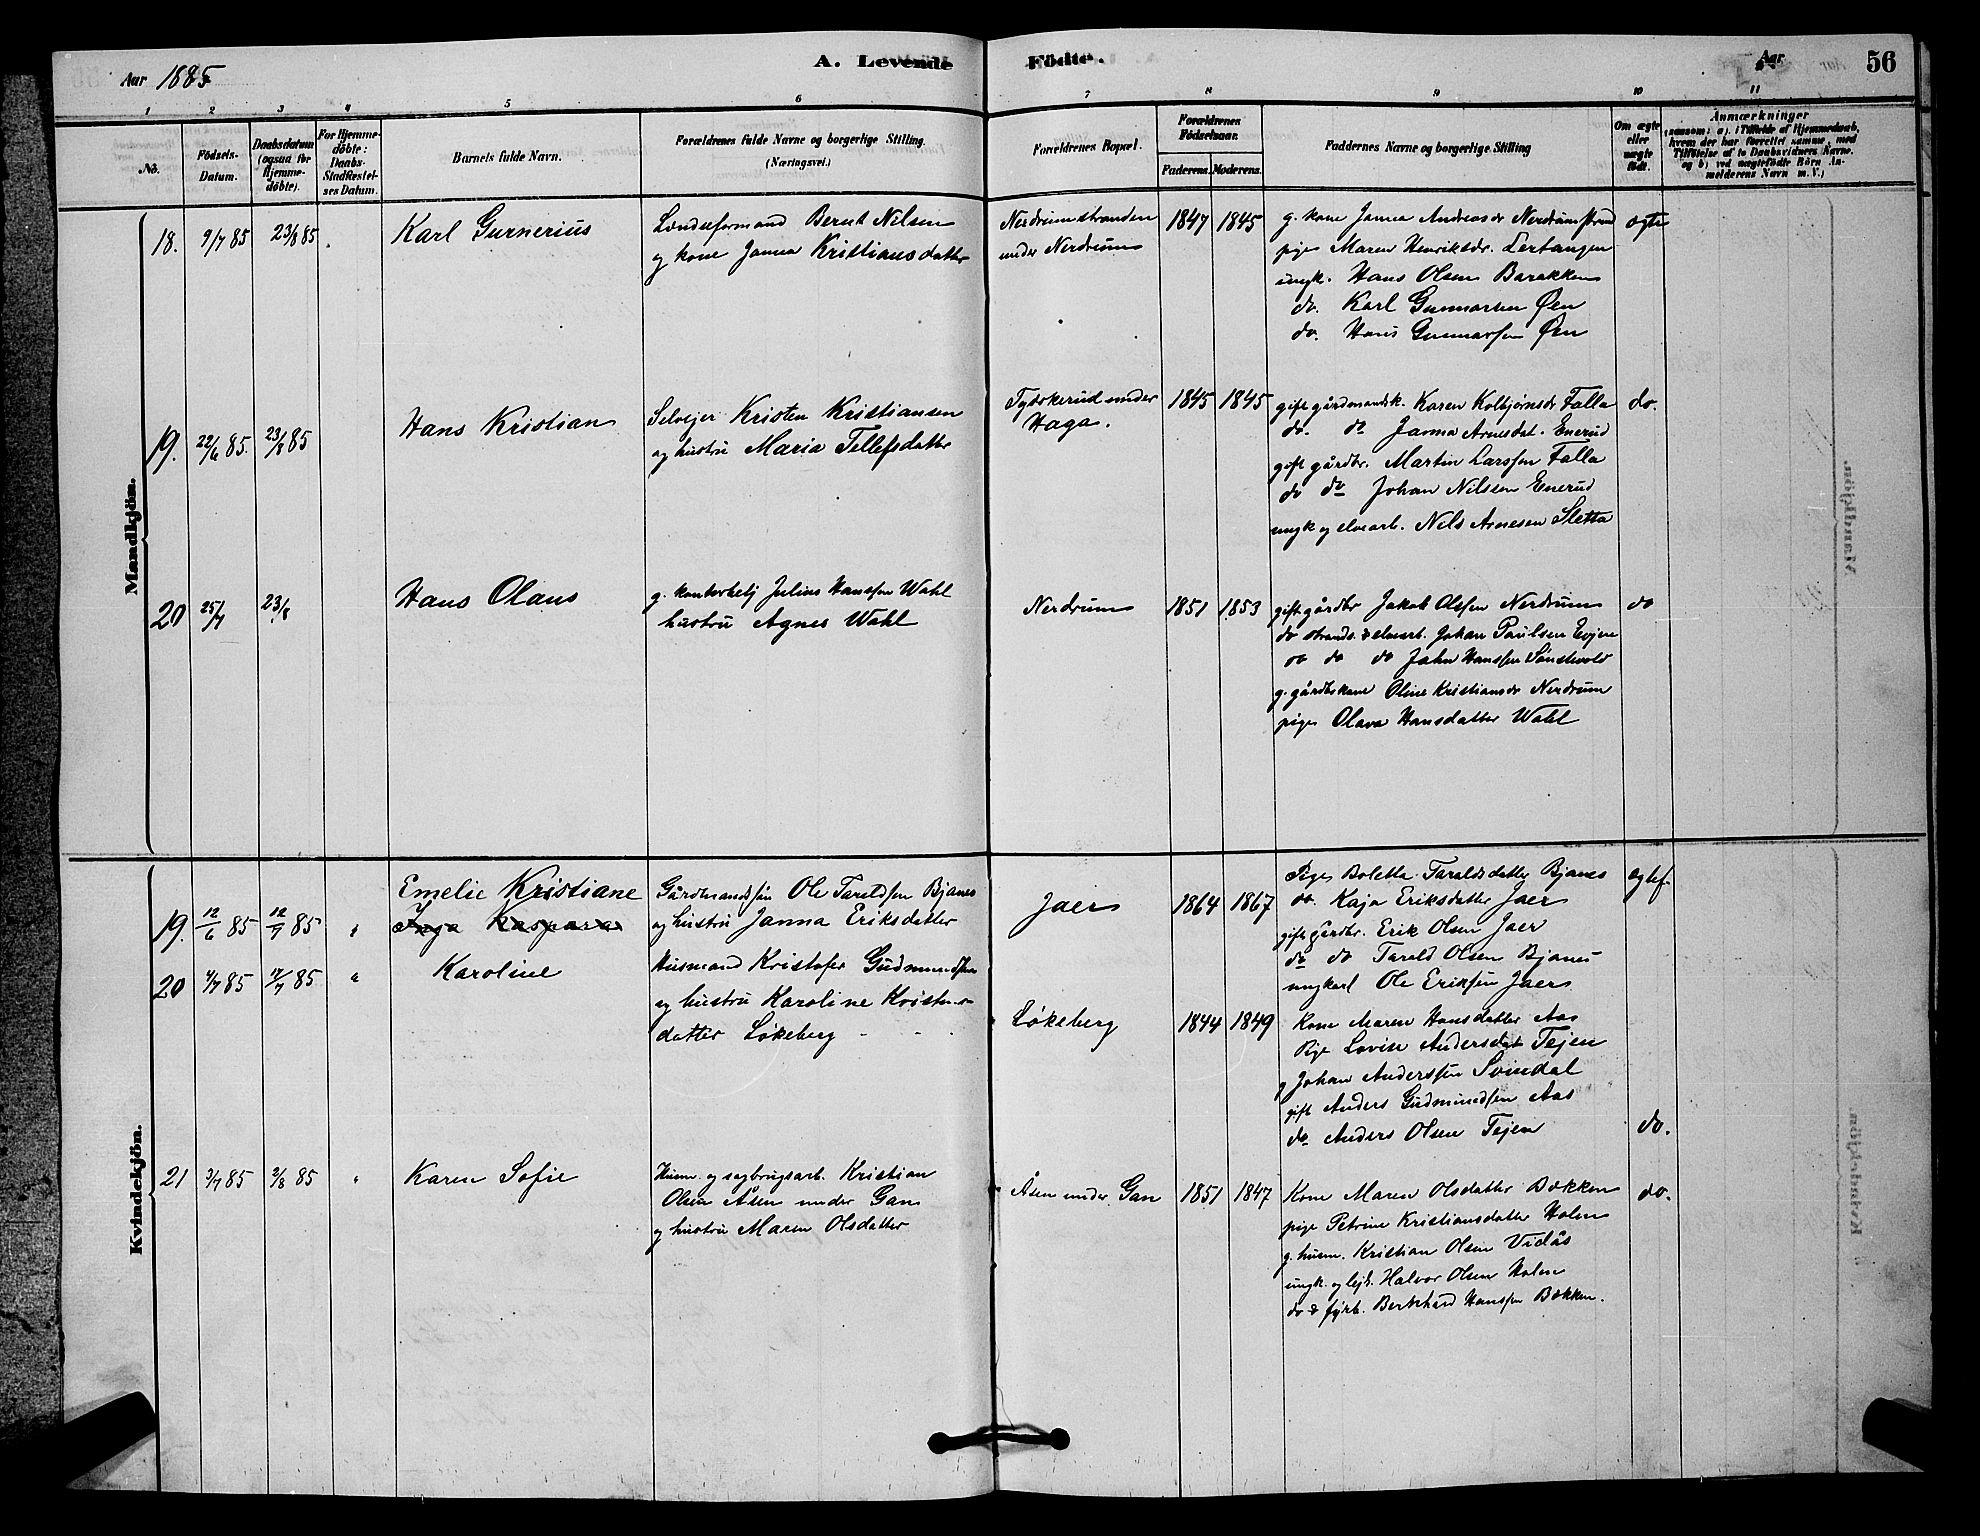 Aar 1885
A. Levende Födte.
Aar
56
1 2 3 4 5 6 7 8 9 10 11
No.
Födsels-Datum.
Daabsdatum (ogsaa for Hjemme-döbte).
For Hjemme-döbte: Daabs-Stadfæstel-ses Datum.
Barnets fulde Navn.
Forældrenes fulde Navne og borgerlige Stilling. (Næringsvei.)
Forældrenes Bopæl.
Forældrenes Födselsaar.
Faderens. Moderens.
Faddernes Navne og borgerlige Stilling
Om ægte eller uægte født.
Anmærkninger
(saasom: a). i Tilfælde af Hjemmedaab,
hvem der har forrettet samme, med
Tilföielse af to Daabsvidners Navne.
og b) ved uægtefödte Börn An-
melderens Navn m. V.)
Mandkjön.
18. 9/7 85 23/8 85
Karl Gurnerius
Londseformand Bernt Nilsen
og kone Janna Kristiansdatter
Nerdrumstranden
under Nerdrum
1847 1845
g. kone Janna Andreasdr Nerdrumstrand
pige Maren Henriksdr. Lertangen
ungk. Hans Olsen Barakken
do. Karl Gunnarsen Øen
do. Hans Gunnarsen Øen
ægte
19. 22/6 85. 23/8 85
Hans Kristian
Selvejer Kristen Kristiansen
og hustru Maria Tellefsdatter
Tydskerud under
Haga.
1845 1845
gift gårdmandsk. Karen Kolbjørnsdr. Falla
do. do Janna Arnesdat. Enerud
gift gårdbr. Martin Larssen Falla
do do Johan Nilssen Enerud
ungk og elvearb. Nils Arnesen Sletta
do.
20 25/7 23/8
Hans Olaus
g. kontorbetj Julius Hanssen Wahl
hustru Agnes Wahl
Nerdrum
1851 1853
gift gårdbr Jakob Olssen Nerdrum
do strands. & elvearb. Johan Paulsen Evjen
do do do John Hanssen Sønstevold
g. gårdbskone Oline Kristiansdr Nerdrum
pige Olava Hansdatter Wahl
do
Kvindekjön.
19. 12/6 85 12/7 85
Emelie Kristiane
Inga Kaspara
Gårdmandssøn Ole Taraldsen Bjanes
og hustru Janna Eriksdatter
Jaer
1864 1867
Pige Boletta Taraldsdatter Bjanes
do. Kaja Eriksdatter Jaer
gift gårdbr. Erik Olsen Jaer
do do Tarald Olsen Bjanes
ungkarl Ole Eriksen Jaer
ægtef
20 4/7 85 12/7 85
Karoline
Husmand Kristofer Gudmundsen
og hustru Karoline Kristens-
datter Løkeberg
Løkeberg
1844 1849
Kone Maren Hansdatter Aas
Pige Lovise Andersdat Tejen
g Johan Anderssen Svindal
gift Anders Gudmundsen Aas
do Anders Olsen Tejen
do.
21 3/7 85 2/8 85
Karen Sofie
Husm. og sagbrugsarb. Kristian
Olsen Åsen under Gan
og hustru Maren Olsdatter
Åsen under Gan
1851 1847
Kone Maren Olsdatter Bakken
pige Petrine Kristiansdatter Holen
g. husm. Kristian Olsen Vidås
ungk. og lejk. Halvor Olsen Holen
do & fyrb. Bernhard Hanssen Bakken.
do.